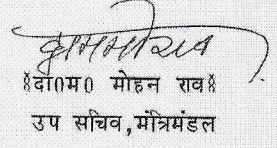 (दा0म0 मोहन राव)
उप सचिव,मंत्रिमंडल